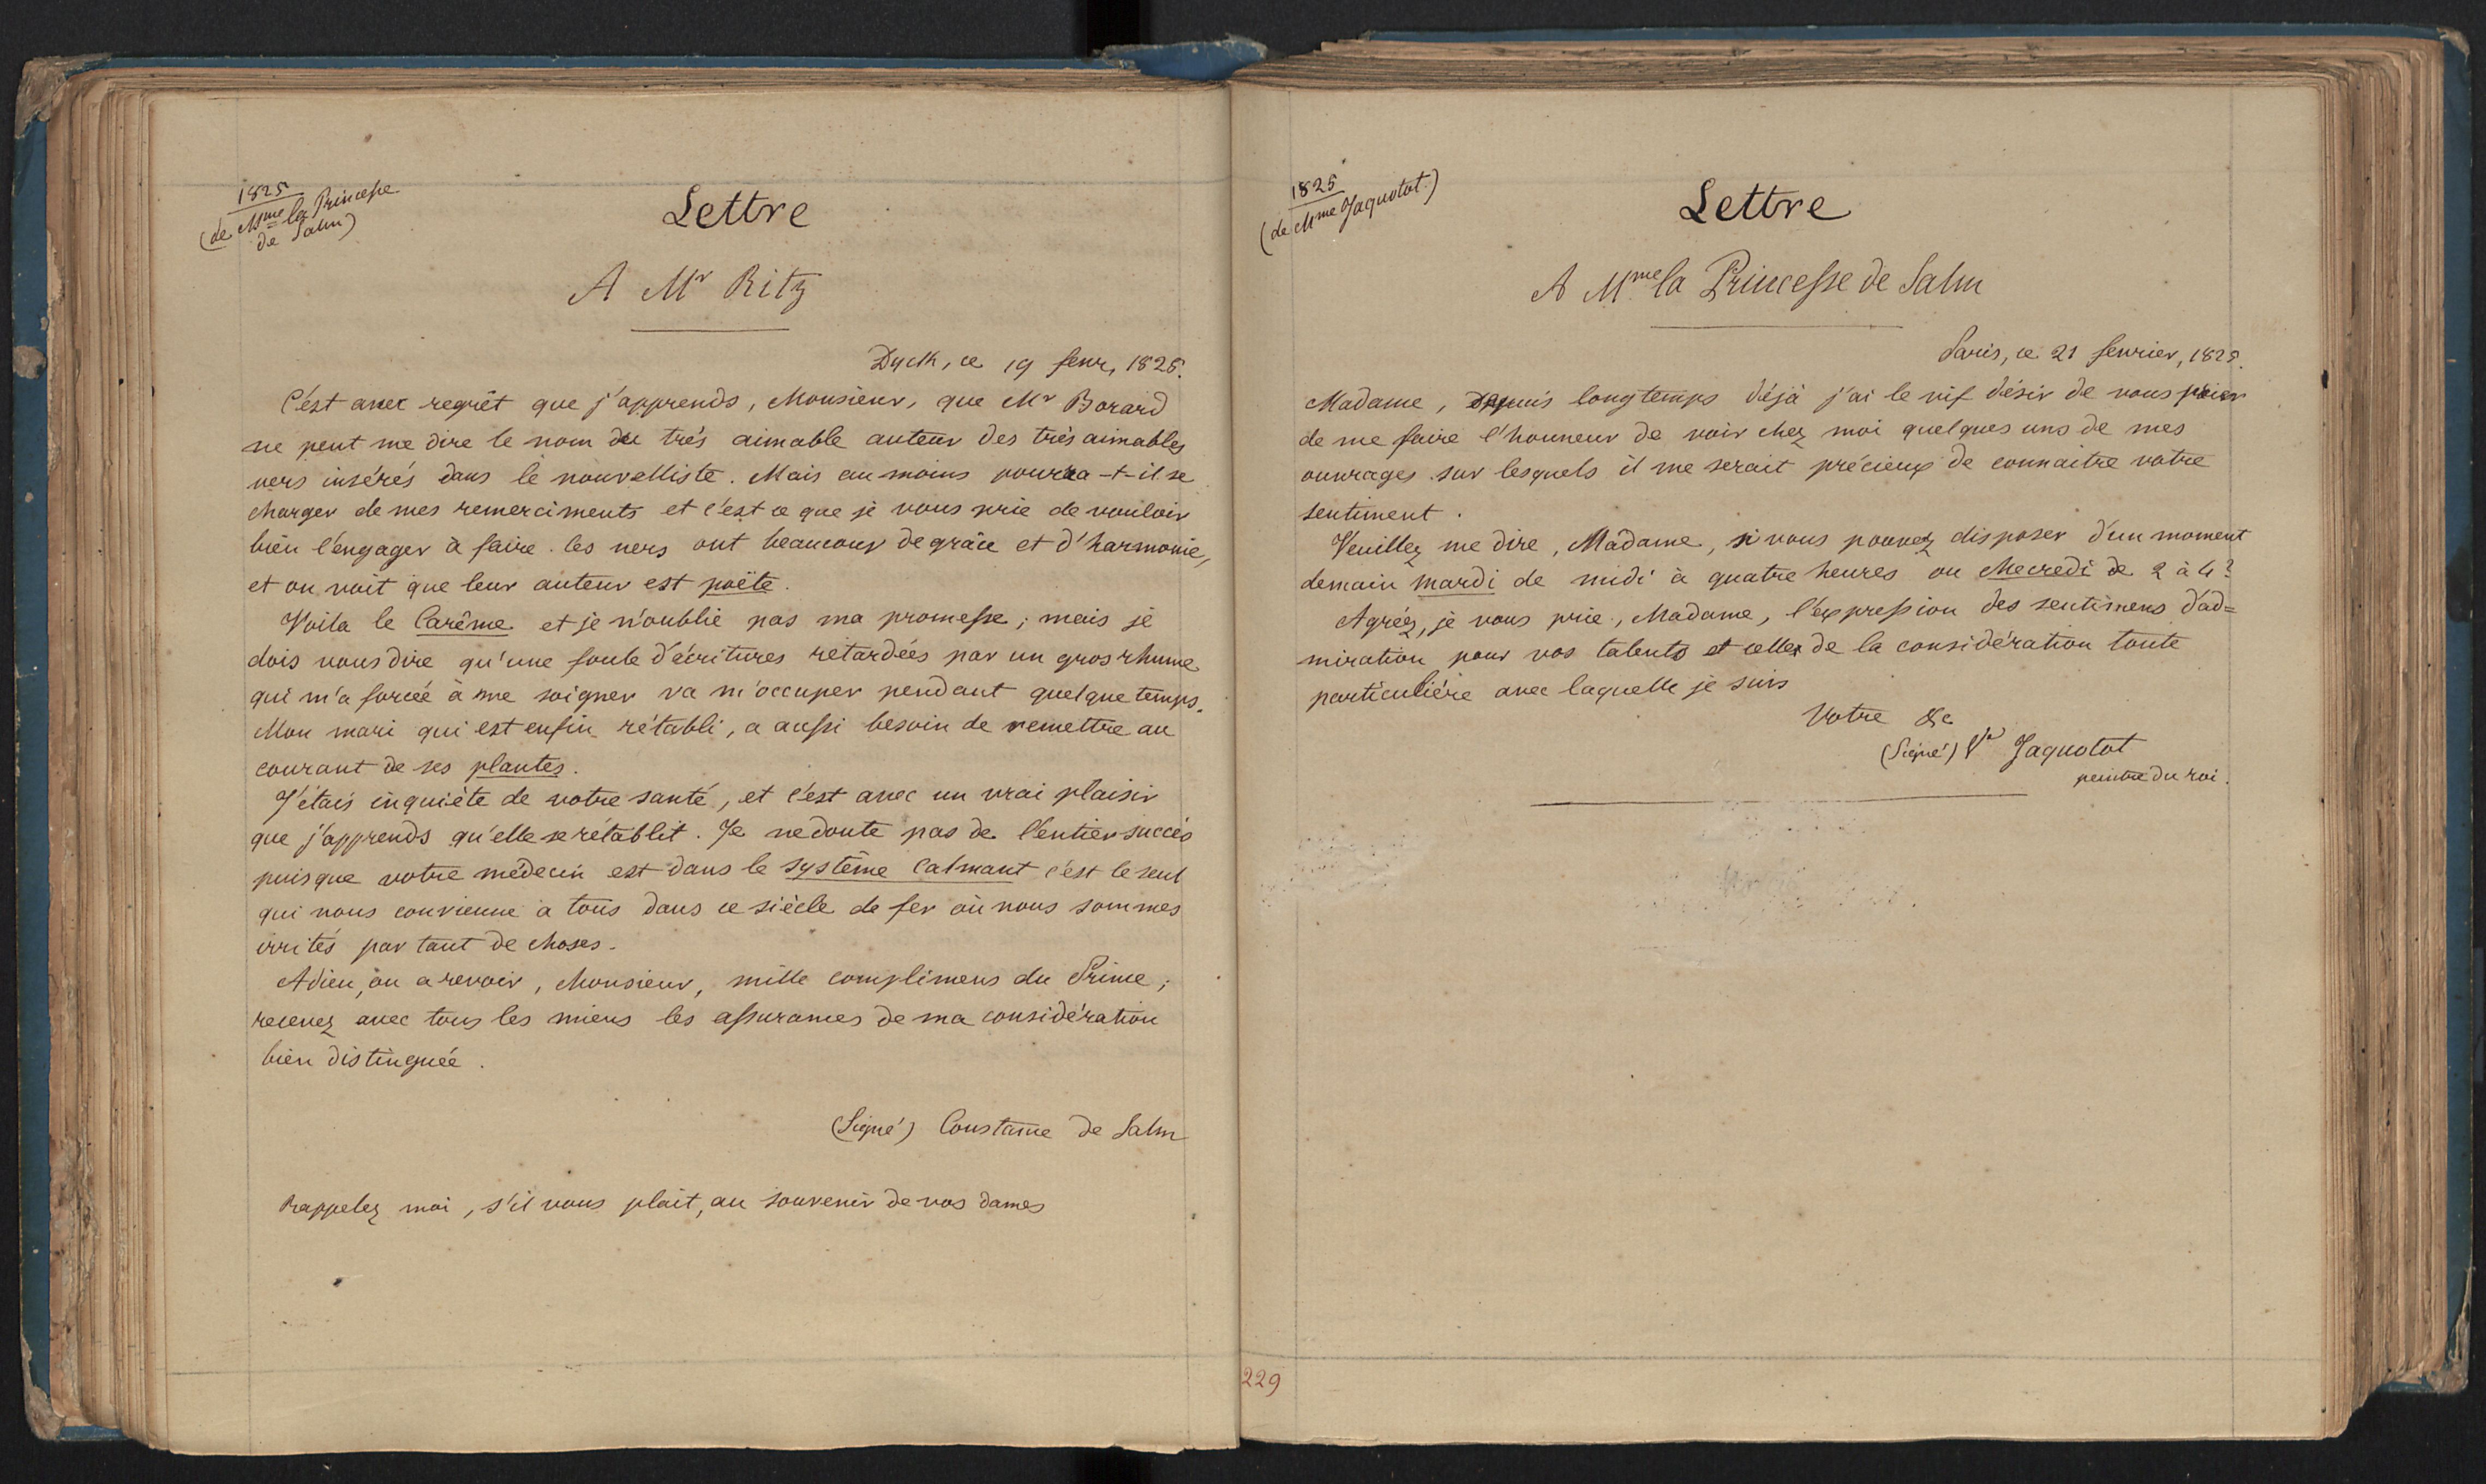 1825
(de Mme la Princesse
de Salm)
Lettre
A Mr Ritz
Dyck, ce 19 fevr, 1825.
C'est avec regrêt que j'apprends, Monsieur, que Mr Borard
ne peut me dire le nom du très aimable auteur des très aimables
vers insérés dans le nouvelliste. Mais au moins pourra-t-il se
charger de mes remerciments et c'est ce que je vous prie de vouloir
bien l'engager à faire. les vers ont beaucoup de grâce et d'harmonie,
et on voit que leur auteur est poëte.
Voila le Carême et je n'oublie pas ma promesse; mais je
dois vous dire qu'une foule d'écritures retardées par un gros rhume
qui m'a forcée à me soigner va m'occuper pendant quelque temps.
Mon mari qui est enfin rétabli, a aussi besoin de remettre au
courant de ses plantes.
J'étais inquiète de votre santé, et c'est avec un vrai plaisir
que j'apprends qu'elle se rétablit. Je ne doute pas de l'entier succès
puisque votre médecin est dans le système calmant c'est le seul
qui nous convienne a tous dans ce siècle de fer où nous sommes
irrités par tant de choses.
Adieu, ou a revoir, Monsieur, mille complimens du Prince;
recevez avec tous les miens les assurances de ma considération
bien distinguée.
(Signé) Constance de Salm
Rappelez moi, s'il vous plait, au souvenir de vos dames
1825
(de Mme Jaquotot.)
Lettre
A Mme la Princesse de Salm
Paris, ce 21 fevrier, 1825.
Madame, depuis longtemps déjà j'ai le vif désir de vous prier
de me faire l'honneur de voir chez moi quelques uns de mes
ouvrages sur lesquels il me serait précieux de connaitre votre
sentiment.
Veuillez me dire, Madame, si vous pouvez disposer d'un moment
demain mardi de midi à quatre heures ou Mecredi de 2 à 4?
Agréez, je vous prie, Madame, l'expression des sentimens d'ad=
miration pour vos talents et celle de la considération toute
particulière avec laquelle je suis
Votre &c
(Signé) Jaquotot
peintre du roi.
229